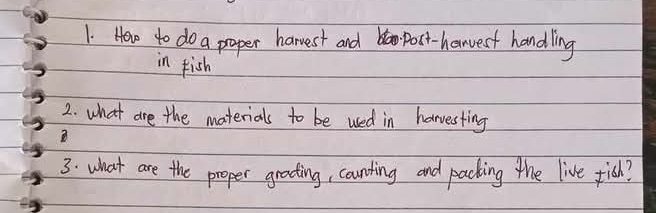 1. How to do a proper harvest and Post-harvest handling
in fish
2. what are the materials to be used in harvesting
3. what are the proper grading, counting and packing the live fish?